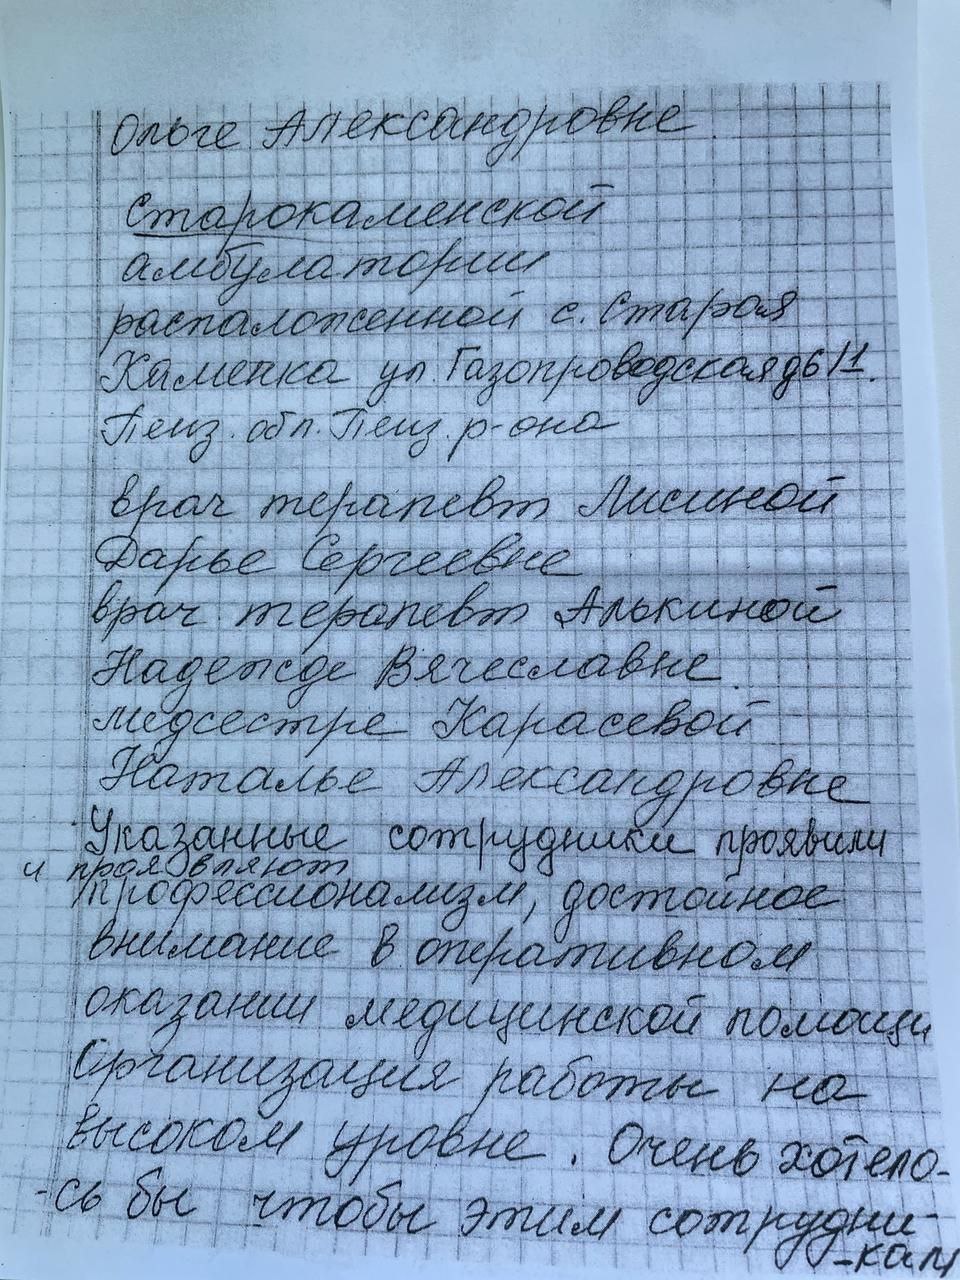 Ольге Александровне
Старокаменской
амбулатории
распаложенной с. Старая
Каменка ул. Газопроводская д6/1.
Пенз. обл. Пенз. р-она
врач терапевт Лисиной
Дарье Сергеевне
врач терапевт Алькиной
Надежде Вячеславне
медсестре Карасевой
Наталье Александровне
Указанные сотрудники проявили
и проявляют
профессионализм, достойное
внимание в оперативном
оказании медицинской помощи
Организация работы на
высоком уровне. Очень хотело-
-сь бы чтобы этим сотрудни-
-кам